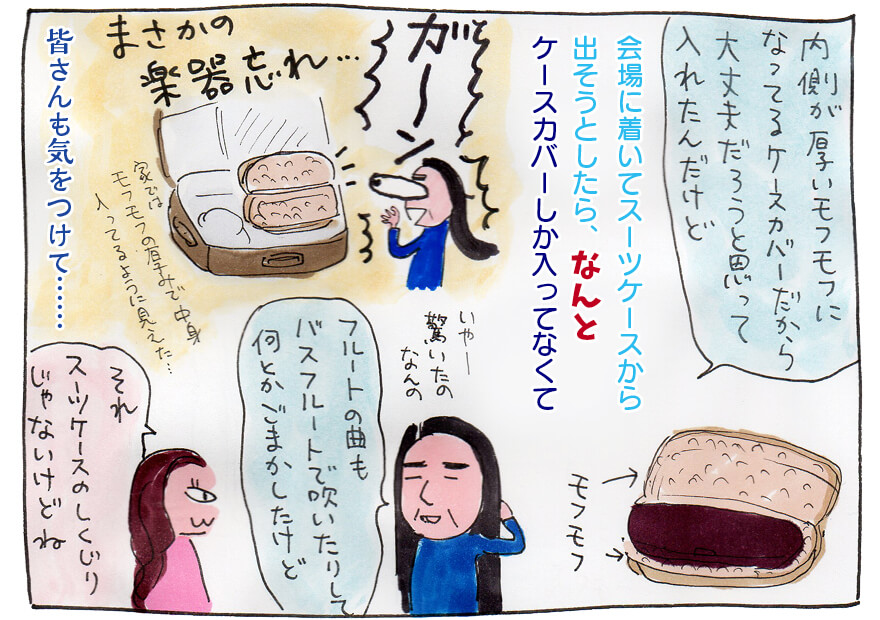 内側が厚いモフモフに
なってるケースカバーだから
大丈夫だろうと思って
入れたんだけど
会場に着いてスーツケースから
出そうとしたら、なんと
ケースカバーしか入ってなくて
ガーン
まさかの
楽器忘れ…
家では
モフモフの厚みで中身
入ってるように見えた…
皆さんも気をつけて……
モフモフ
いやー
驚いたの
なんの
フルートの曲も
バスフルートで吹いたりして
何とかごまかしたけど
それ
スーツケースのしくじり
じゃないけどね